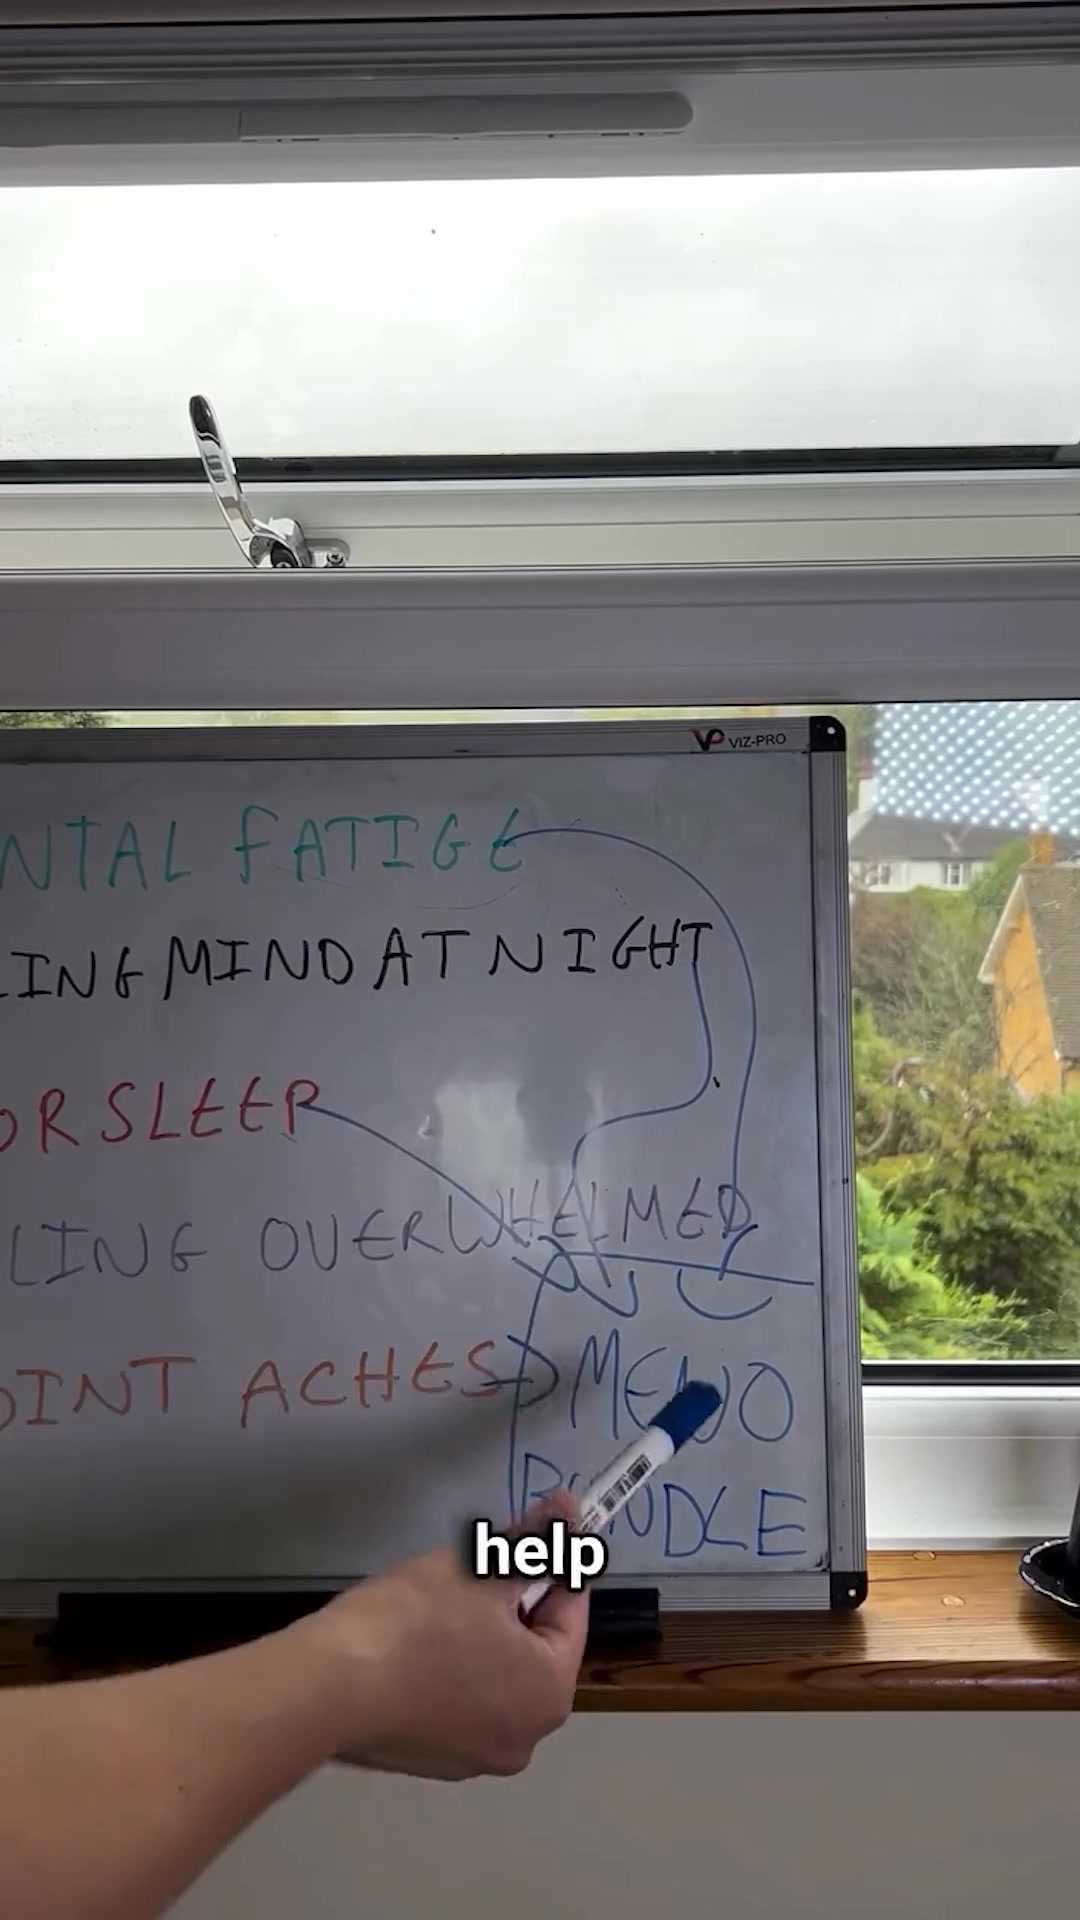 VP VIZ-PRO
NTAL FATIGE
LING MIND AT NIGHT
OR SLEEP
LING OVERWHELMED
OINT ACHES
MENO
BUNDLE
help